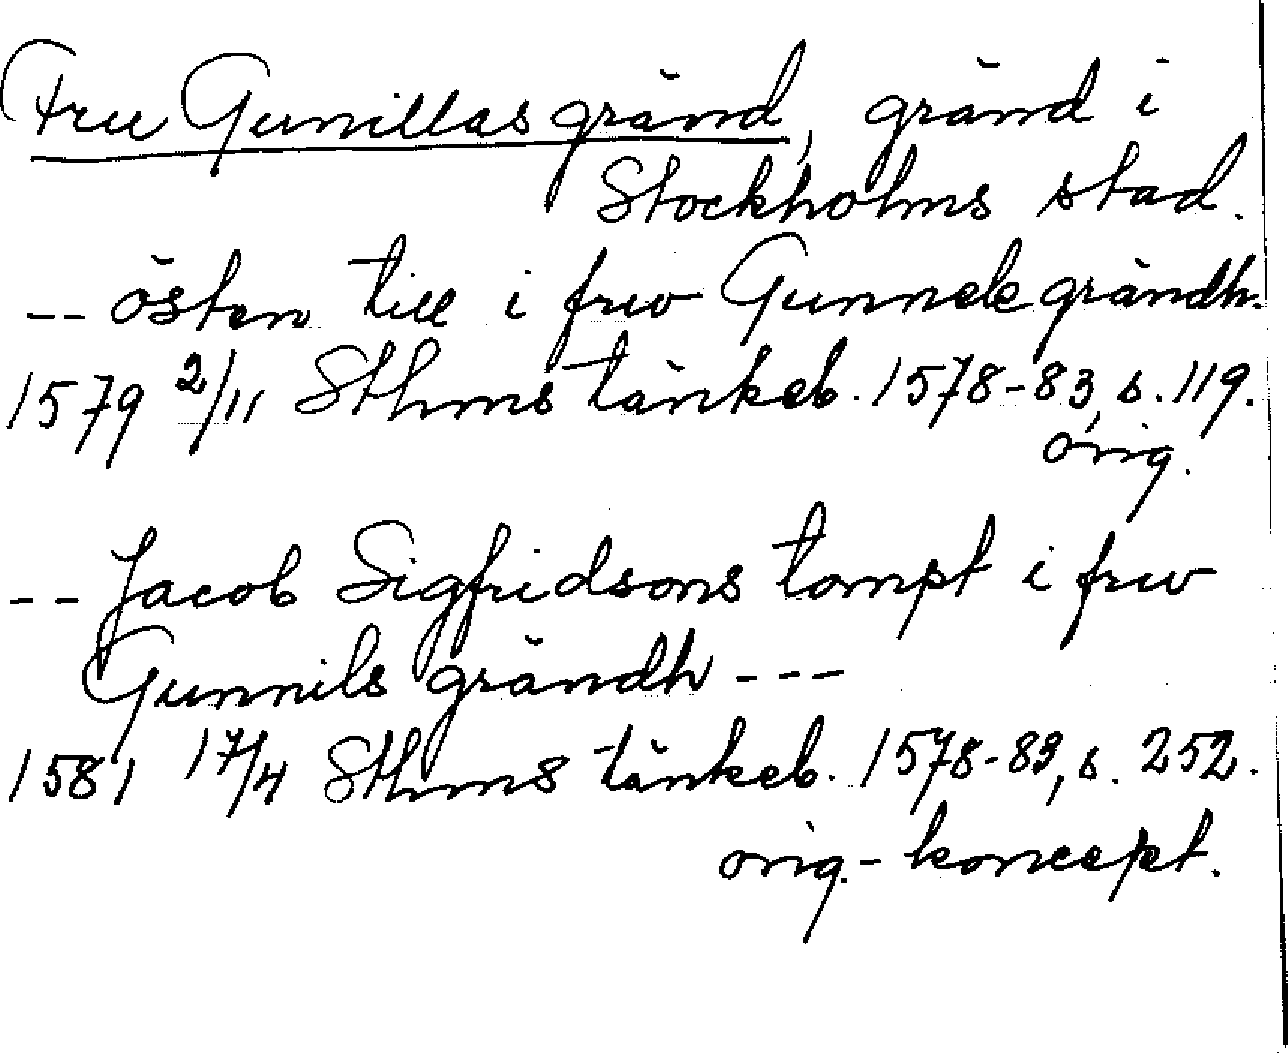 Fru Gunillas gränd, gränd i
Stockholms stad.
-- östen till i frw Gunnele grändh.
1579 2/11 Sthms tänkeb. 1578-83, s. 119.
orig.
-- Jacob Sigfridsons tompt i frw
Gunnils grändh ---
1581 17/4 Sthms tänkeb. 1578-83, s. 252.
orig.- koncept.